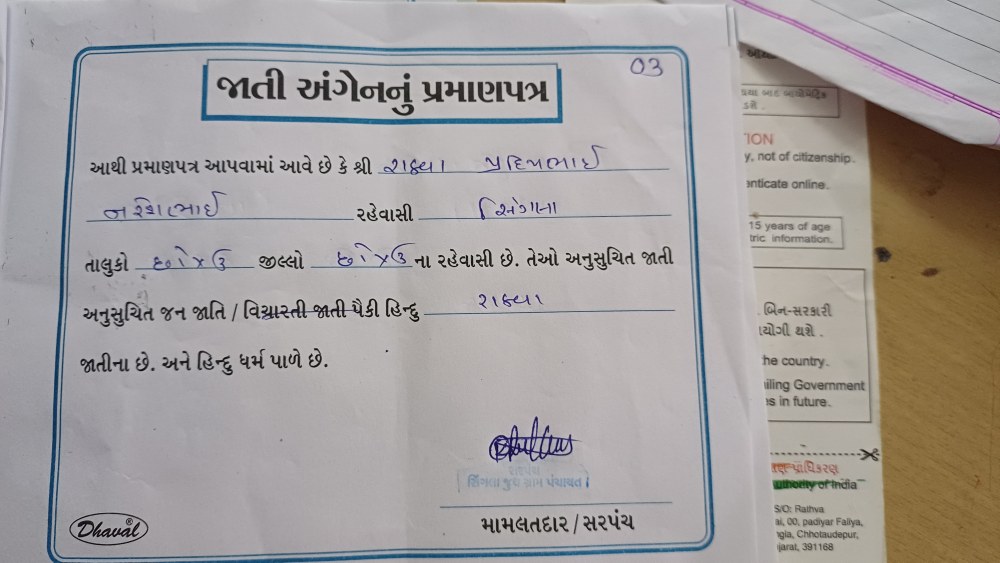 03
જાતી અંગેનનું પ્રમાણપત્ર
આથી પ્રમાણપત્ર આપવામાં આવે છે કે શ્રી રાઠવા પ્રદિપભાઈ
નરેશભાઈ રહેવાસી સિંગલા
તાલુકો છોટાઉ જીલ્લો છોટાઉ ના રહેવાસી છે. તેઓ અનુસુચિત જાતી
અનુસુચિત જન જાતિ / વિચારતી જાતી પૈકી હિન્દુ રાઠવા
જાતીના છે. અને હિન્દુ ધર્મ પાળે છે.
સરપંચ
ગ્રામ પંચાયત
મામલતદાર / સરપંચ
Dhaval
ION
y, not of citizenship.
enticate online.
15 years of age
tric information.
બિન-સરકારી
યોગી થશે.
he country.
ailing Government
es in future.
uthority of India
S/O: Rathva
ai, 00, padiyar Faliya,
ngla, Chhotaudepur,
ujarat, 391168